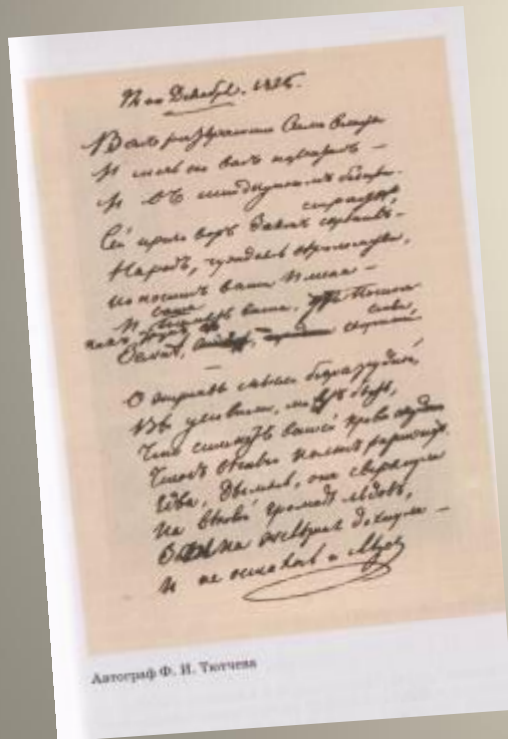 14-ое Декабря. 1825.
Васъ развратило Самовластье
И мечъ его васъ поразилъ —
И въ неподкупномъ безпри-
страстьи
Сей приговоръ Законъ скрѣпилъ.
Народъ, чуждаясь вѣроломства,
Поноситъ ваши Имена —
И ваша
О жертвы мысли безразсудной,
Вы уповали, можетъ быть,
Что станетъ вашей крови скудной
Чтобъ вѣчный полюсъ растопить.
Едва, дымясь, она сверкнула
На вѣковой громадѣ льдовъ,
Зима желѣзная дохнула —
И не осталось и слѣдовъ
Автограф Ф. И. Тютчева